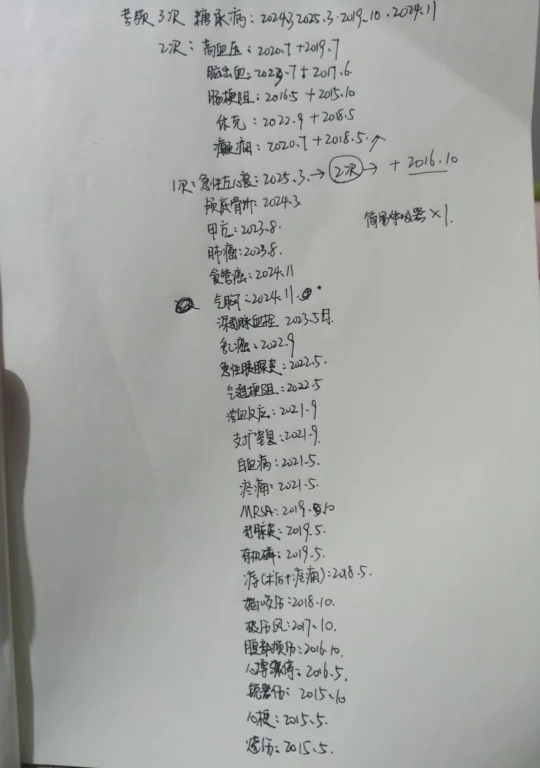 考频3次 糖尿病:2024.3 2025.3.2019.10.2024.11
2次:高血压:2020.7+2019.7
脑出血:2023.7+2017.6
肠梗阻:2016.5+2015.10
休克:2022.9+2018.5
癫痫:2020.7+2018.5.
1次:急性左心衰:2025.3.→2次→+2016.10
颅底骨折:2024.3
简易呼吸器×1.
甲亢:2023.8.
肺癌:2023.8.
食管癌:2024.11
气胸:2024.11.
深静脉血栓 2023.5月.
乳癌:2022.9
急性胰腺炎:2022.5.
气道梗阻:2022.5
溶血反应:2021.9
支扩窒息:2021.9.
白血病:2021.5.
疼痛:2021.5.
MRSA:2019.10
2019.5.
有机磷:2019.5.
疼痛):2018.5.
2018.10.
破伤风:2017.10.
腹部损伤:2016.10.
心搏骤停:2016.5.
锐器伤:2015.10
心梗:2015.5.
烧伤:2015.5.